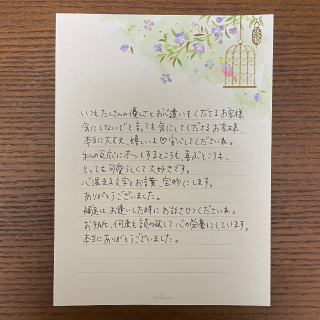 いつもたくさんの優しさとお心遣いをくださるお客様
気にしないでと言っても気にしてくださるお客様、
本当に大丈夫、嬉しいよ♡安心してくださいね。
私の反応にホッとするところも、喜ぶところも、
とっても可愛らしくて大好きです。
心温まる文字とお言葉、宝物にします。
ありがとうございました。
補足は、お逢いした時にお話させてくださいね。
お手紙、何度も読み返して心の栄養にしています。
本当にありがとうございました。